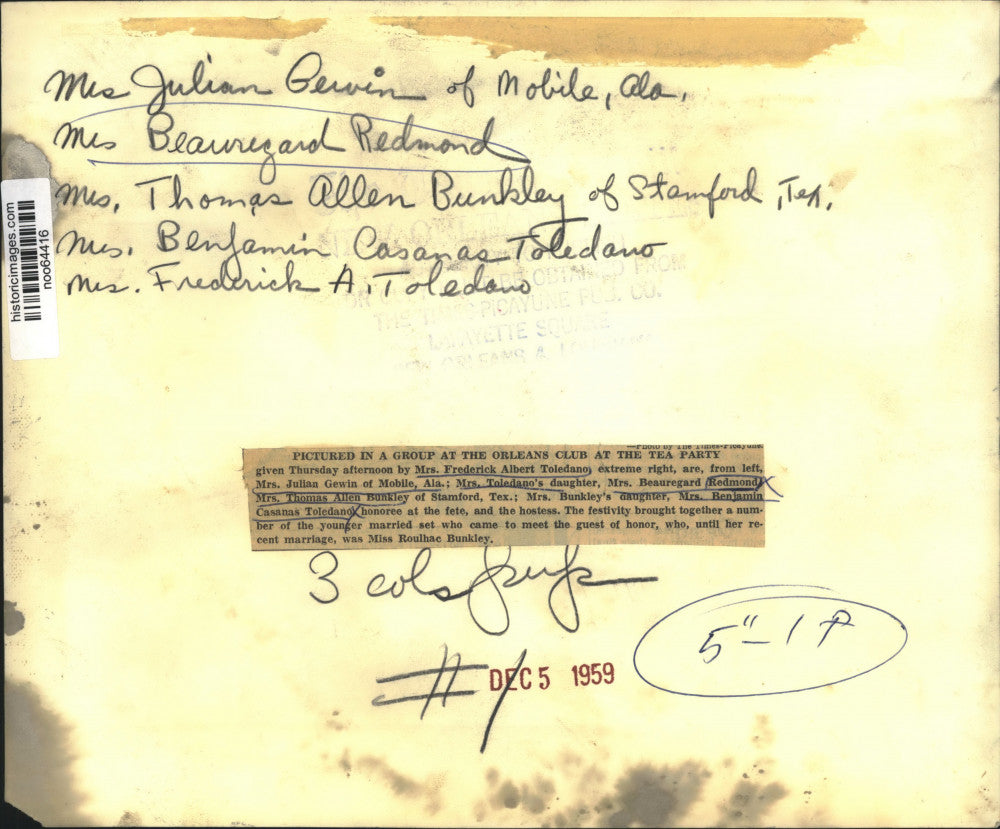 Mrs Julian Gewin of Mobile, Ala.
Mrs Beauregard Redmond
Mrs. Thomas Allen Bunkley of Stamford, Tex.
Mrs. Benjamin Casanas Toledano
Mrs. Frederick A. Toledano
historicimages.com
noo64416
OBTAINED FROM
THE TIMES-PICAYUNE PUB. CO.
LAFAYETTE SQUARE
NEW ORLEANS
—Photo by The Times-Picayune.
PICTURED IN A GROUP AT THE ORLEANS CLUB AT THE TEA PARTY
given Thursday afternoon by Mrs. Frederick Albert Toledano, extreme right, are, from left,
Mrs. Julian Gewin of Mobile, Ala.; Mrs. Toledano's daughter, Mrs. Beauregard Redmond;
Mrs. Thomas Allen Bunkley of Stamford, Tex.; Mrs. Bunkley's daughter, Mrs. Benjamin
Casanas Toledano, honoree at the fete, and the hostess. The festivity brought together a num-
ber of the younger married set who came to meet the guest of honor, who, until her re-
cent marriage, was Miss Roulhac Bunkley.
3 cols
# 1
DEC 5 1959
5" - 1 P